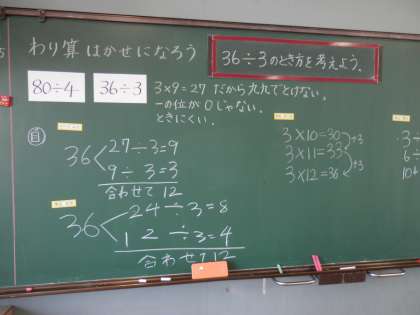 わり算はかせになろう
36÷3のとき方を考えよう。
80÷4
36÷3
3×9=27だから九九でとけない。
一の位が0じゃない。
ときにくい。
自
36 27÷3=9
9÷3=3
合わせて12
36 24÷3=8
12÷3=4
合わせて12
3×10=30
3×11=33
3×12=36
+3
+3